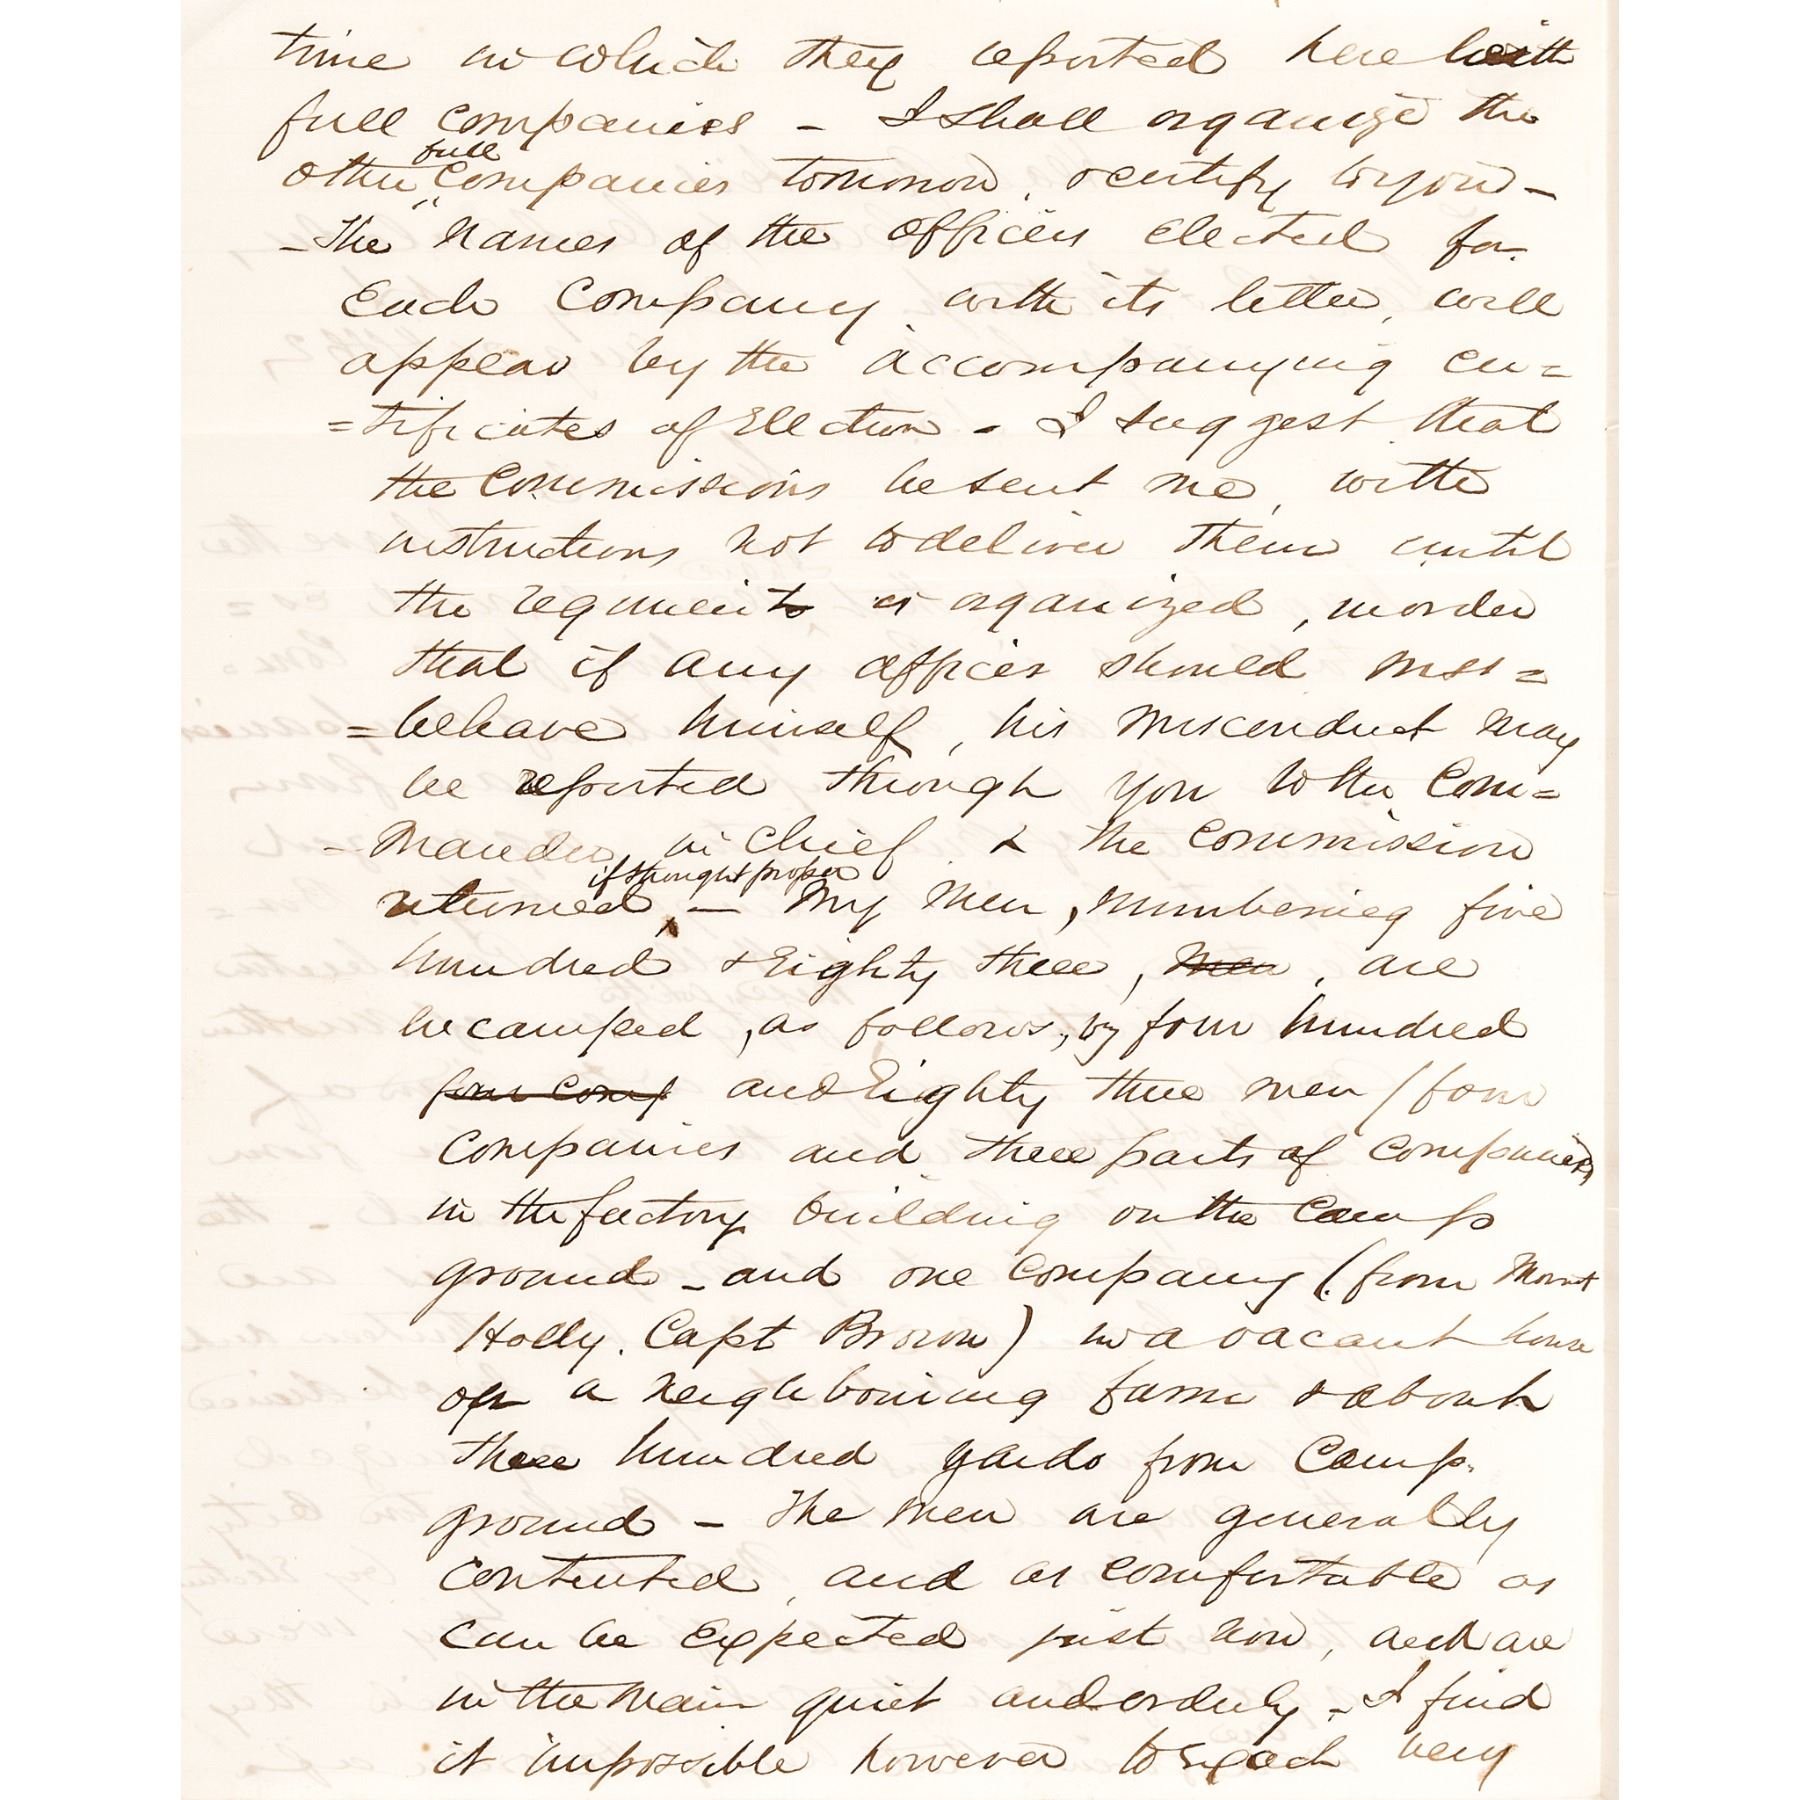 time in which they reported here with
full companies - I shall organize the
other full companies tomorrow, & certify to you -
- The names of the officers elected for
Each Company, with its letter, will
appear by the accompanying cer=
=tificates of Election - I suggest that
the Commissions be sent me, with
instructions not to deliver them until
the regiment is organized, in order
that if any officer should mis=
=behave himself, his misconduct may
be reported through you to the Com=
-mander in Chief & the Commission
returned, if thought proper - My men, numbering five
hundred & Eighty three, men, are
encamped, as follows, by four hundred
four comp and Eighty three men (four
Companies and three parts of companies
in the factory building on the Camp
ground - and one Company (from Mount
Holly. Capt Brown) in a vacant house
on a neighboring farm & about
three hundred yards from Camp.
ground - The men are generally
contented, and as comfortable as
can be Expected just now, and are
in the main quiet and orderly - I find
it impossible however to reach very